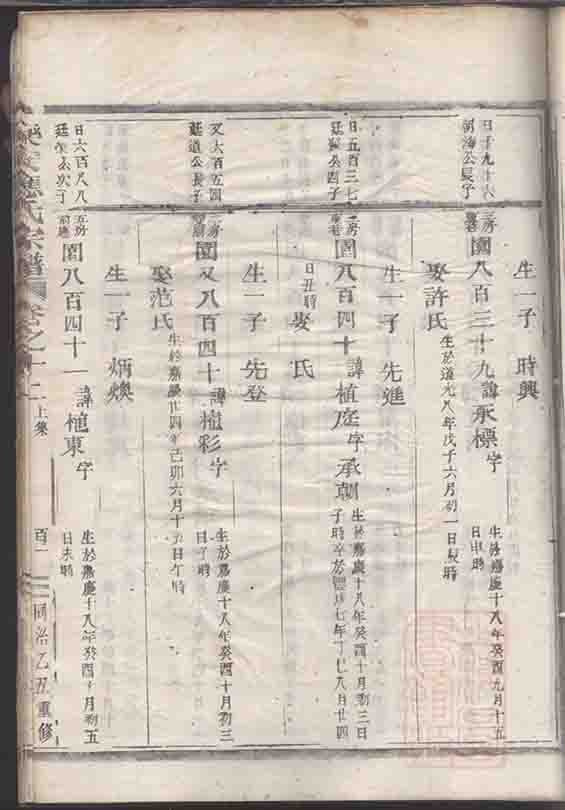 生一子 時興
日子九十六三房
河海公長子
園八百三十九 諱承標 字
生於嘉慶十八年癸酉九月十五
日申時
娶許氏 生於道光八年戊子六月初一日辰時
生一子 先進
日五百三七二房
公四子
園八百四十 諱植庭 字承朝
生於嘉慶十八年癸酉十月初三日
子時卒於豐七年丁巳八月廿四
日丑時 娶 氏
生一子 先登
又六百五四房
莊道公長子
園又八百四十 諱植彩 字
生於嘉慶十八年癸酉十月初三
日子時
娶范氏 生於嘉慶廿四年己卯六月十五日午時
生一子 炳煥
日六百八八五房
廷公次子
園八百四十一 諱植東 字
生於嘉慶十八年癸酉十月初五
日未時
氏宗譜 卷之十上 上集 百一 同治乙丑重修